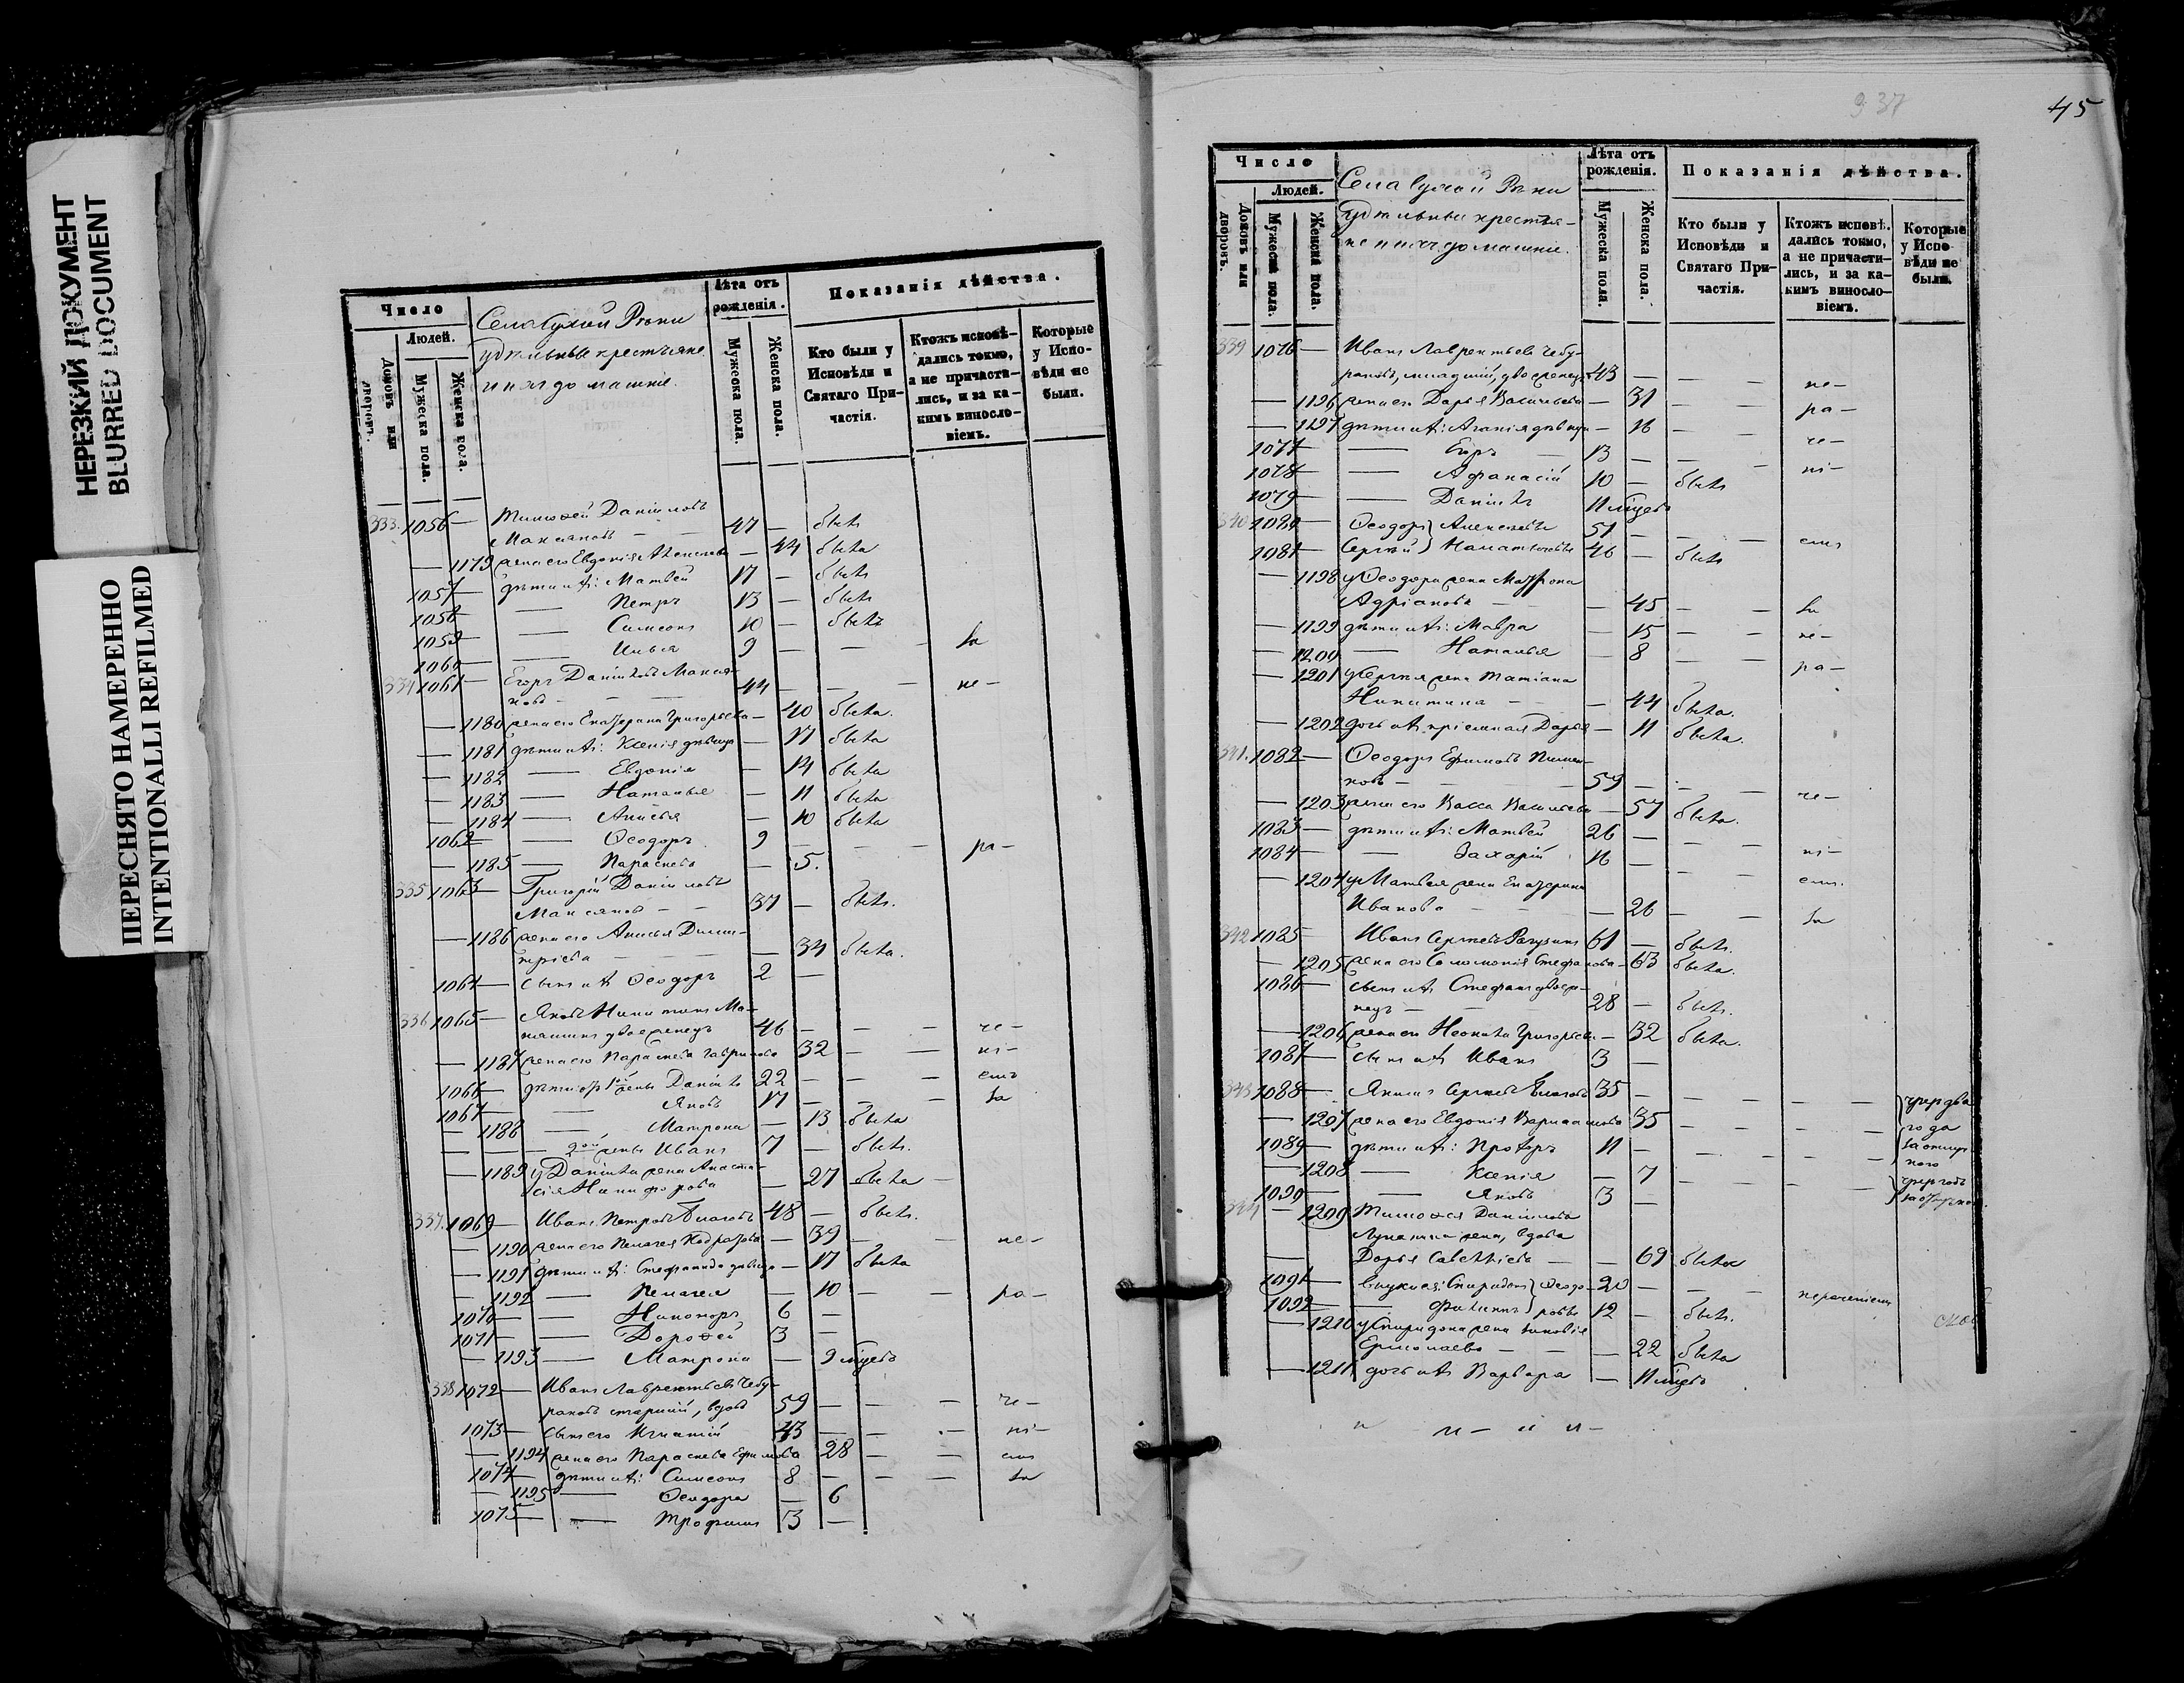 НЕРЕЗКИЙ ДОКУМЕНТ
BLURRED DOCUMENT
ПЕРЕСНЯТО НАМЕРЕННО
INTENTIONALLI REFILMED
Число
Людей.
Домовъ или дворовъ.
Мужеска пола.
Женска пола.
Села Сухой Рѣки
удѣльные крестьяне
и ихъ домашніе.
Лѣта отъ рожденія.
Мужеска пола.
Женска пола.
Показанія дѣйства.
Кто были у Исповѣди и Святаго Причастія.
Ктожъ исповѣдались токмо, а не причастились, и за какимъ винословіемъ.
Которые у Исповѣди не были.
333. 1056 — Тимоѳей Даніиловъ
47 — быть
— 1179 жена его Евдокія — 44 быта
1057 — дѣти ихъ: Матвей 17 — быть
1058 — Петръ 13 — быть
1059 — Симеонъ 10 — быть
1060 — Илья 9 — — за
334 1061 — Егоръ Даніиловъ
новъ — 44 — — не-
— 1180 жена его Екатерина Григорьева — 40 быта.
— 1181 дѣти ихъ: Ксенія дѣвица — 17 быта
— 1182 — Евдокія — 14 быта
— 1183 — Наталья — 11 быта
— 1184 — Анисья — 10 быта
1062 — Ѳеодоръ 9 — — ра-
— 1185 — Параскева — 5.
335 1063 — Григорій Даніиловъ
37 — быть.
— 1186 жена его Анисья Дими-
тріева — — 34 быта.
1064 — сынъ ихъ Ѳеодоръ 2 —
336 1065 — Яковъ Никитинъ Ма-
двоеженецъ 46 — — че-
— 1187 жена его Параскева Гаврилова 32 — — ні-
1066 — дѣти отъ 1ой жены Даніилъ 22 — — емъ
1067 — Яковъ 17 — — за
— 1188 — Матрона — 13 быта
— 2ой жены Иванъ 7 — быть.
— 1189 у Даніила жена Анаста-
сія Никифорова — 27 быта
337. 1069 — Иванъ Петровъ 48 — быть.
— 1190 жена его Пелагея — 39 — — не-
— 1191 дѣти ихъ: Стефанида дѣвица — 17 быта
— 1192 — Пелагея — 10 — — ра-
1070 — Никаноръ 6 —
1071 — Дороѳей 3 —
— 1193 — Матрона — 9 мѣцевъ
338 1072 — Иванъ Лаврентьевъ Чебу-
раковъ старшій, вдовъ 59 — — че-
1073 — сынъ его Игнатій 43 — — ні-
— 1194 жена его Параскева Ефимова 28 — — емъ
1074 — дѣти ихъ: Симеонъ 8 — — за
— 1195 — Ѳеодора — 6
1075 — Трофимъ 3 —
937
45
Число
Людей.
Домовъ или дворовъ.
Мужеска пола.
Женска пола.
Села Сухой Рѣки
удѣльные крестья-
не и ихъ домашніе.
Лѣта отъ рожденія.
Мужеска пола.
Женска пола.
Показанія дѣйства.
Кто были у Исповѣди и Святаго Причастія.
Ктожъ исповѣ. дались токмо, а не причасти- лись, и за ка- кимъ винословіемъ.
Которые у Исповѣди не были.
339 1076 — Иванъ Лаврентьевъ Чебу-
раковъ, младшій, двоеженецъ 43 — — не-
— 1196 жена его Дарья Васильева — 31 — — ра-
— 1197 дѣти ихъ: Агапія дѣвица — 16 — — че-
1077 — Егоръ 13 — — ні-
1078 — Афанасій 10 — быть
1079 — Даніилъ 11 мѣцевъ
340 1080 — Ѳеодоръ } Алексѣевы 51 — — емъ
1081 — Сергѣй } 46 — быть
— 1198 у Ѳеодора жена Матрона
Адріанова — — 45 — — за
— 1199 дѣти ихъ: Мавра — 15 — — не-
— 1200 — Наталья — 8 — — ра-
— 1201 у Сергѣя жена Татіана
Никитина — — 44 быта.
— 1202 дочь ихъ пріемная Дарья — 11 быта.
341. 1082 — Ѳеодоръ Ефимовъ
новъ — 59 — — че-
— 1203 жена его Васса Васильева — 57 быта.
1083 — дѣти ихъ: Матвей 26 — — ні-
1084 — Захарій 16 — — емъ.
— 1204 у Матвея жена Екатерина
Иванова — — 26 — — за
342 1085 — Иванъ Сергѣевъ 61 — быть.
— 1205 жена его Соломонія Стефанова — 63 быта.
1086 — сынъ ихъ Стефанъ двоеже-
нецъ — 28 — быть.
— 1206 жена его Неонила Григорьева — 32 быта.
1087 — сынъ ихъ Иванъ 3 —
343 1088 — Якимъ Сергѣевъ 35 — — — чрезъ два
— 1207 жена его Евдокія Варлаамова 35 — — — года
1089 — дѣти ихъ: Прохоръ 11 — — — за отлуч-
кою
— 1208 — Ксенія — 7 — — чрезъ годъ
1090 — Яковъ 3 —
344 — 1209 Тимоѳея Даніилова
жена, вдова
Дарья Савельева — — 69 быта
1091 — внуки ея: Спиридонъ } Ѳеодо- 20 — — нерачéніемъ
1092 — Филиппъ } ровы 12 — быть.
— 1210 у Спиридона жена Зиновія
Ермолаева — — 22 быта
— 1211 дочь ихъ Варвара — 11 мѣцевъ